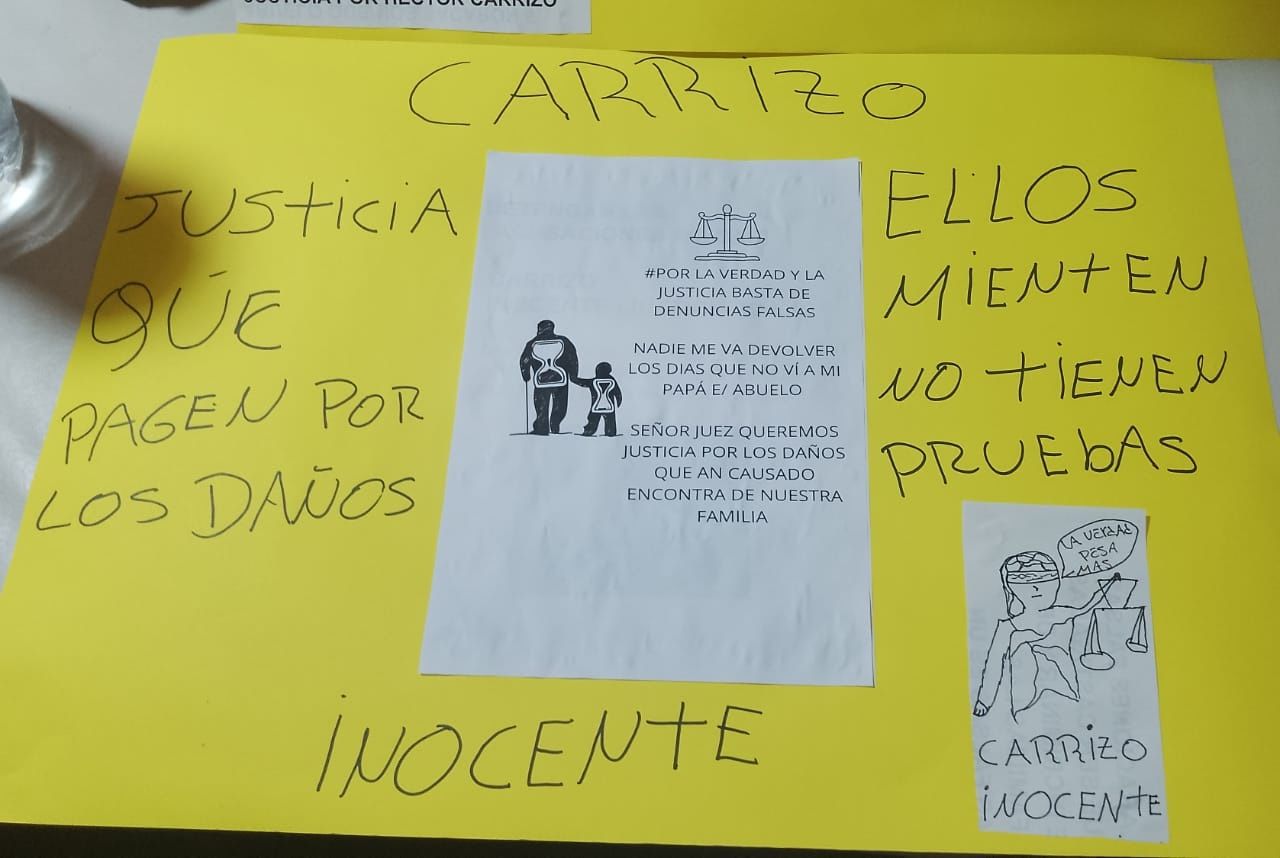 JUSTICIA POR HECTOR CARRIZO
CARRIZO
JUSTICIA
QÚE
PAGEN POR
LOS DAÑOS
#POR LA VERDAD Y LA
JUSTICIA BASTA DE
DENUNCIAS FALSAS
NADIE ME VA DEVOLVER
LOS DIAS QUE NO VÍ A MI
PAPÁ E/ ABUELO
SEÑOR JUEZ QUEREMOS
JUSTICIA POR LOS DAÑOS
QUE AN CAUSADO
ENCONTRA DE NUESTRA
FAMILIA
ELLOS
MIENTEN
NO TIENEN
PRUEbAS
LA VERDAD
PESA
MAS
CARRIZO
INOCENTE
INOCENTE